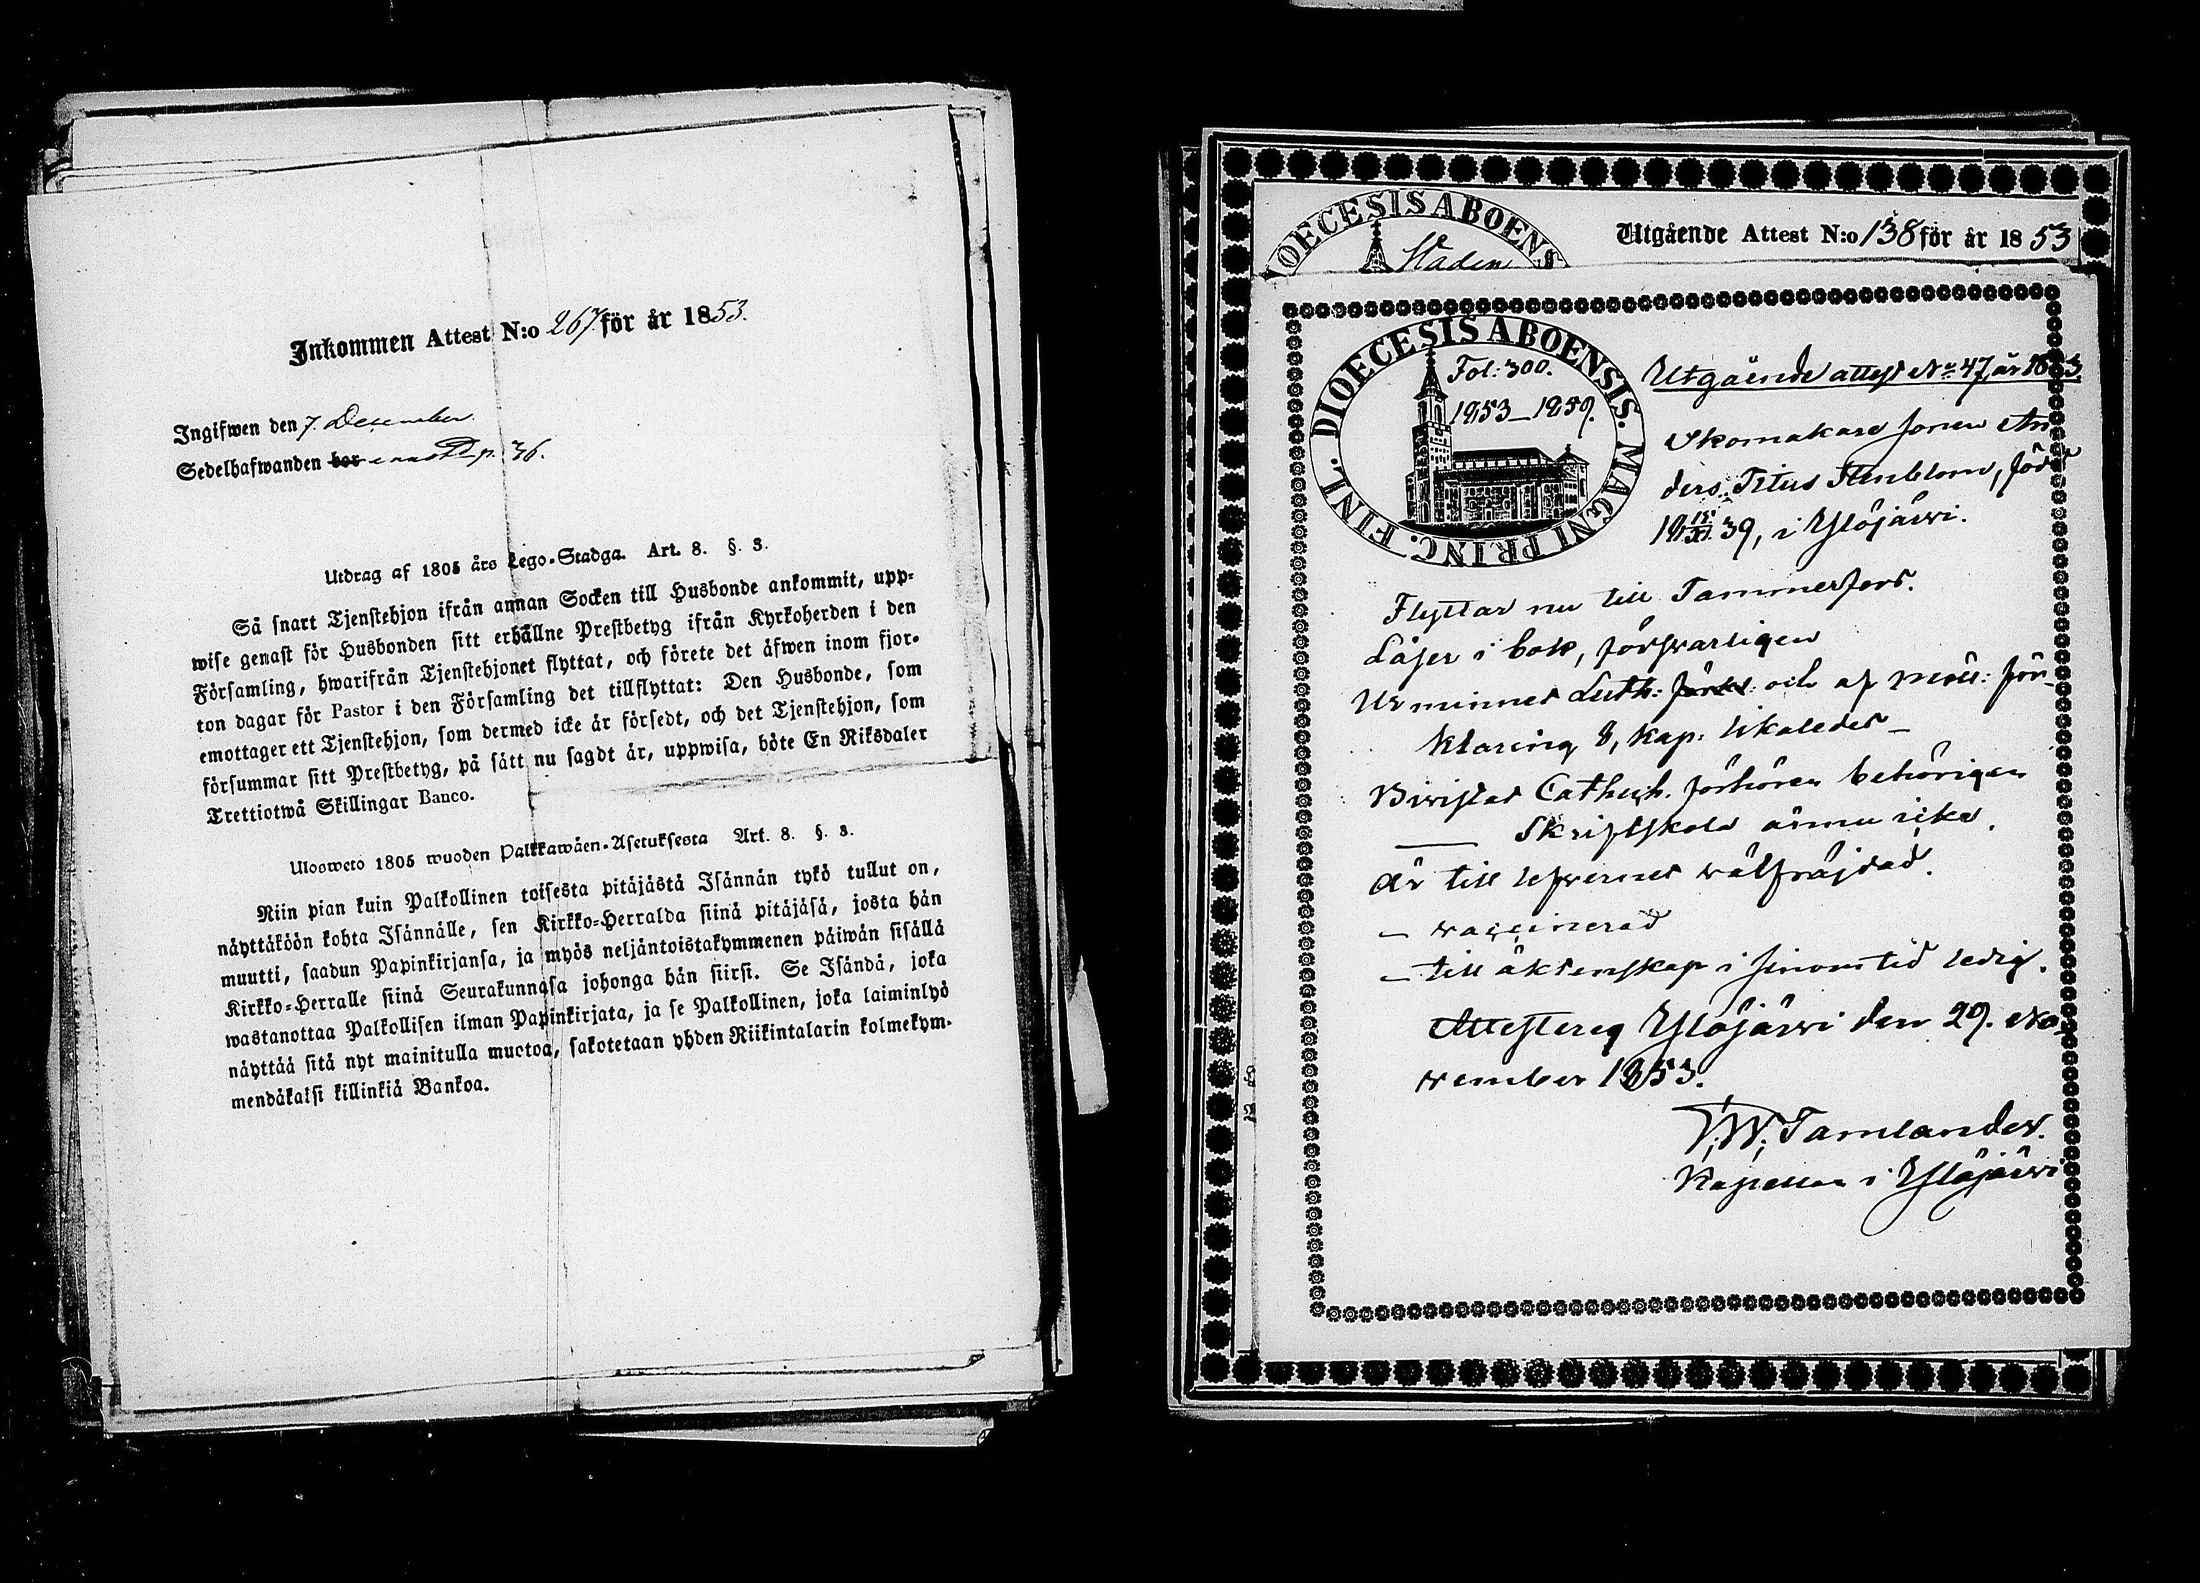 Inkommen Attest N:o 267 för år 1853.
Ingifwen den 7. December
Sedelhafwanden bor p. 36.
Utdrag af 1805 års Lego-Stadga. Art. 8. §. 3.
Så snart Tjenstehjon ifrån annan Socken till Husbonde ankommit, upp-
wise genast för Husbonden sitt erhållne Prestbetyg ifrån Kyrkoherden i den
Församling, hwarifrån Tjenstehjonet flyttat, och förete det äfwen inom fjor-
ton dagar för Pastor i den Församling det tillflyttat: Den Husbonde, som
emottager ett Tjenstehjon, som dermed icke är försedt, och det Tjenstehjon, som
försummar sitt Prestbetyg, på sätt nu sagdt är, uppwisa, böte En Riksdaler
Trettiotwå Skillingar Banco.
Ulosweto 1805 wuoden Palkkawäen-Asetuksesta Art. 8. §. 3.
Niin pian kuin Palkollinen toisesta pitäjästä Isännän tykö tullut on,
näyttäköön kohta Isännälle, sen Kirkko-Herralda siinä pitäjäsä, josta hän
muutti, saadun Papinkirjansa, ja myös neljäntoistakymmenen päiwän sisällä
Kirkko-Herralle siinä Seurakunnasa johonga hän siirsi. Se Isändä, joka
wastanottaa Palkollisen ilman Papinkirjata, ja se Palkollinen, joka laiminlyö
näyttää sitä nyt mainitulla muotoa, sakotetaan yhden Riikintalarin kolmekym-
mendäkaksi killinkiä Bankoa.
DIOECESIS ABOENS
Staden
Utgående Attest N:o 138 för år 1853
DIOECESIS ABOENSIS. MAGNI PRINC. FINL.
Fol: 300.
1853–1859.
Utgående attest No 47, år 1853
Skomakare sonen An
ders Titus Stenblom, född
18 39, i Ylöjärvi.
Flyttar nu till Tammerfors.
Läser i bok, försvarligen
Ur minnet Luth: förkl: och af för
klaring 8, kap. likaledes –
Bivistat Cathech. förhören behörigen
Skriftskola ännu icke.
Är till lefvernet välfräjdad.
– vaccinerad
– till äktenskap i sinom tid ledig.
Attesterar Ylöjärvi den 29. No
vember 1853.
Tamlander.
Kapellan i Ylöjärvi